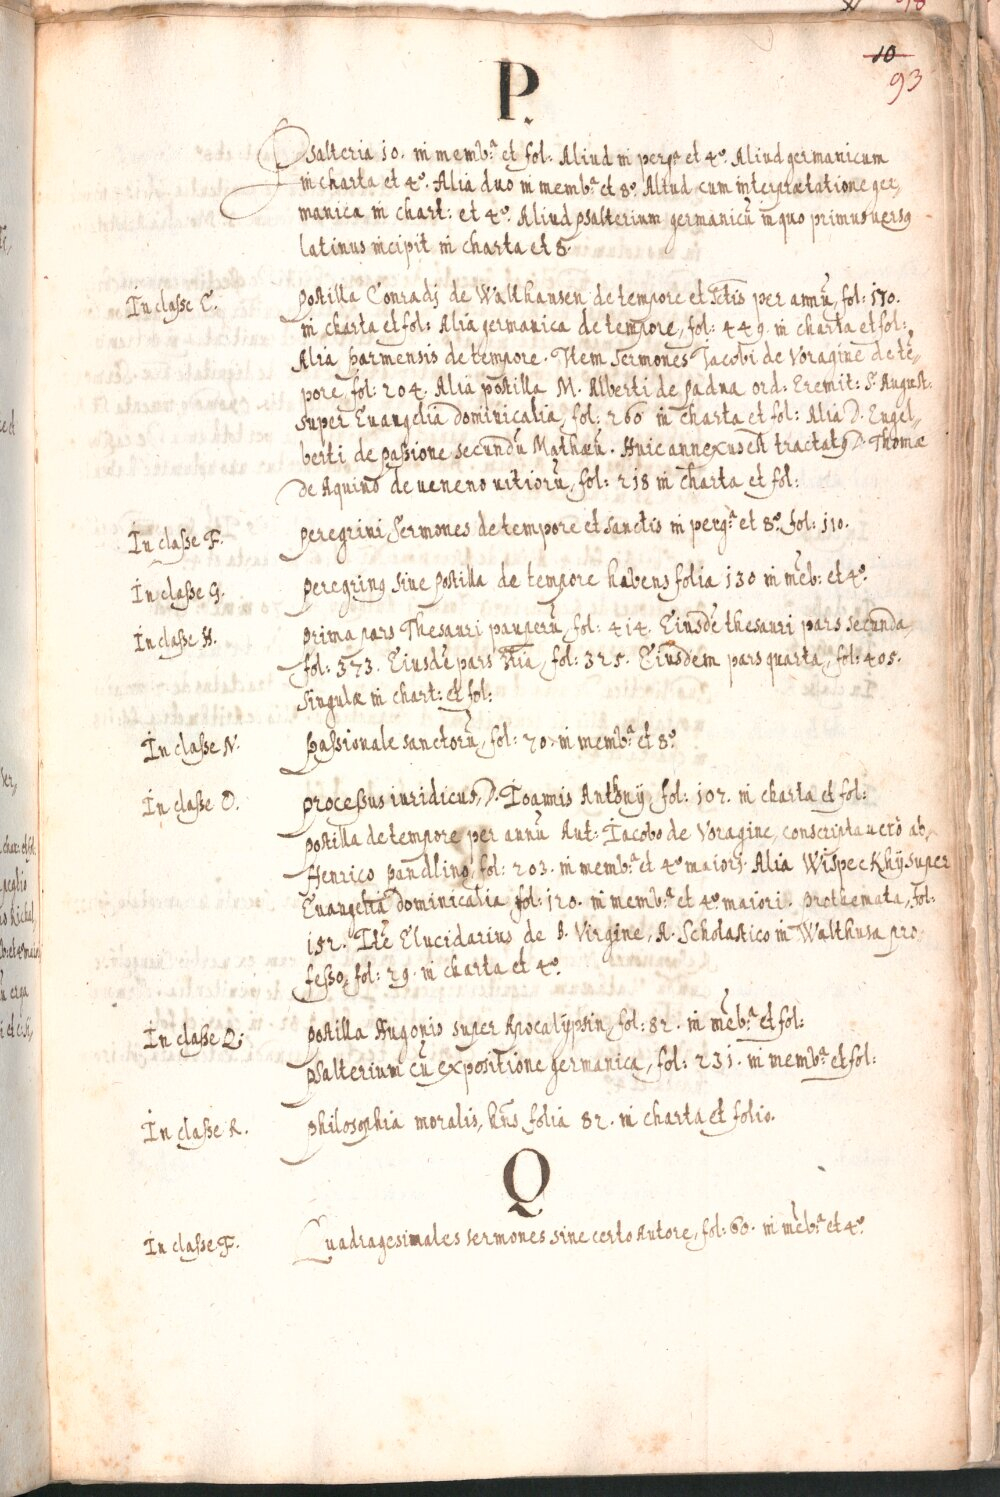 10
93
P.
Psalteria 10. in memb.a et fol: Aliud in perg.a et 4.o Aliud germanicum
in charta et 4.o Alia duo in memb.a et 8.o Aliud cum interpraetatione ger,,
manica in chart: et 4.o Aliud psalterium germanicū in quo primus versq
latinus incipit in charta et 8.
In classe C. Postilla Conradj de Walthausen de tempore et Sctis per annū, fol: 170.
in charta et fol: Alia germanica de tempore, fol: 449. in charta et fol:
Alia parmensis de tempore. Item Sermones Jacobi de Voragine de tē,,
pore, fol: 204. Alia postilla M. Alberti de Padua ord: Eremit: S. August:
super Euangelia dominicalia, fol: 260 in charta et fol: Alia D. Engel,,
berti de passione secundū Mathæū. Huic annexus est tractatq D. Thomæ
de Aquino de ueneno uitiorū, fol: 218 in charta et fol:
In classe F. Peregrini Sermones de tempore et sanctis in perg.a et 8.o fol: 110.
In classe G. Peregrinq sive Postilla de tempore habens folia 130 in mēb: et 4.o
In classe H. Prima pars Thesauri pauperū, fol: 414. Eiusdē thesauri pars secunda
fol: 373. Eiusdē pars 3tia, fol: 325. Eiusdem pars quarta, fol: 405.
singulæ in chart: et fol:
In classe N. Passionale sanctorū, fol: 70. in memb.a et 8.o
In classe O. Processus iuridicus, D. Ioannis Anthonij, fol: 107. in charta et fol:
Postilla de tempore per annū Aut: Iacobo de Voragine, conscripta uerò ab,,
Henrico Pandlino, fol: 203. in memb.a et 4.o maiorj. Alia WispecKhij super
Euangelia Dominicalia fol: 120. in memb.a et 4.o maiori. Prothemata, fol:
152. Itē Elucidarius de B. Virgine, A. Scholastico in Walthusa pro,,
fesso, fol: 29. in charta et 4.o
In classe Q: Postilla Hugonis super Apocalÿpsin, fol: 82. in mēb.a et fol:
Psalterium cū expositione germanica, fol: 231. in memb.a et fol:
In classe R. Philosophia moralis, hñs folia 82. in charta et folio.
Q
In classe F. Quadragesimales sermones sine certo Autore, fol: 60. in mēb.a et 4.o